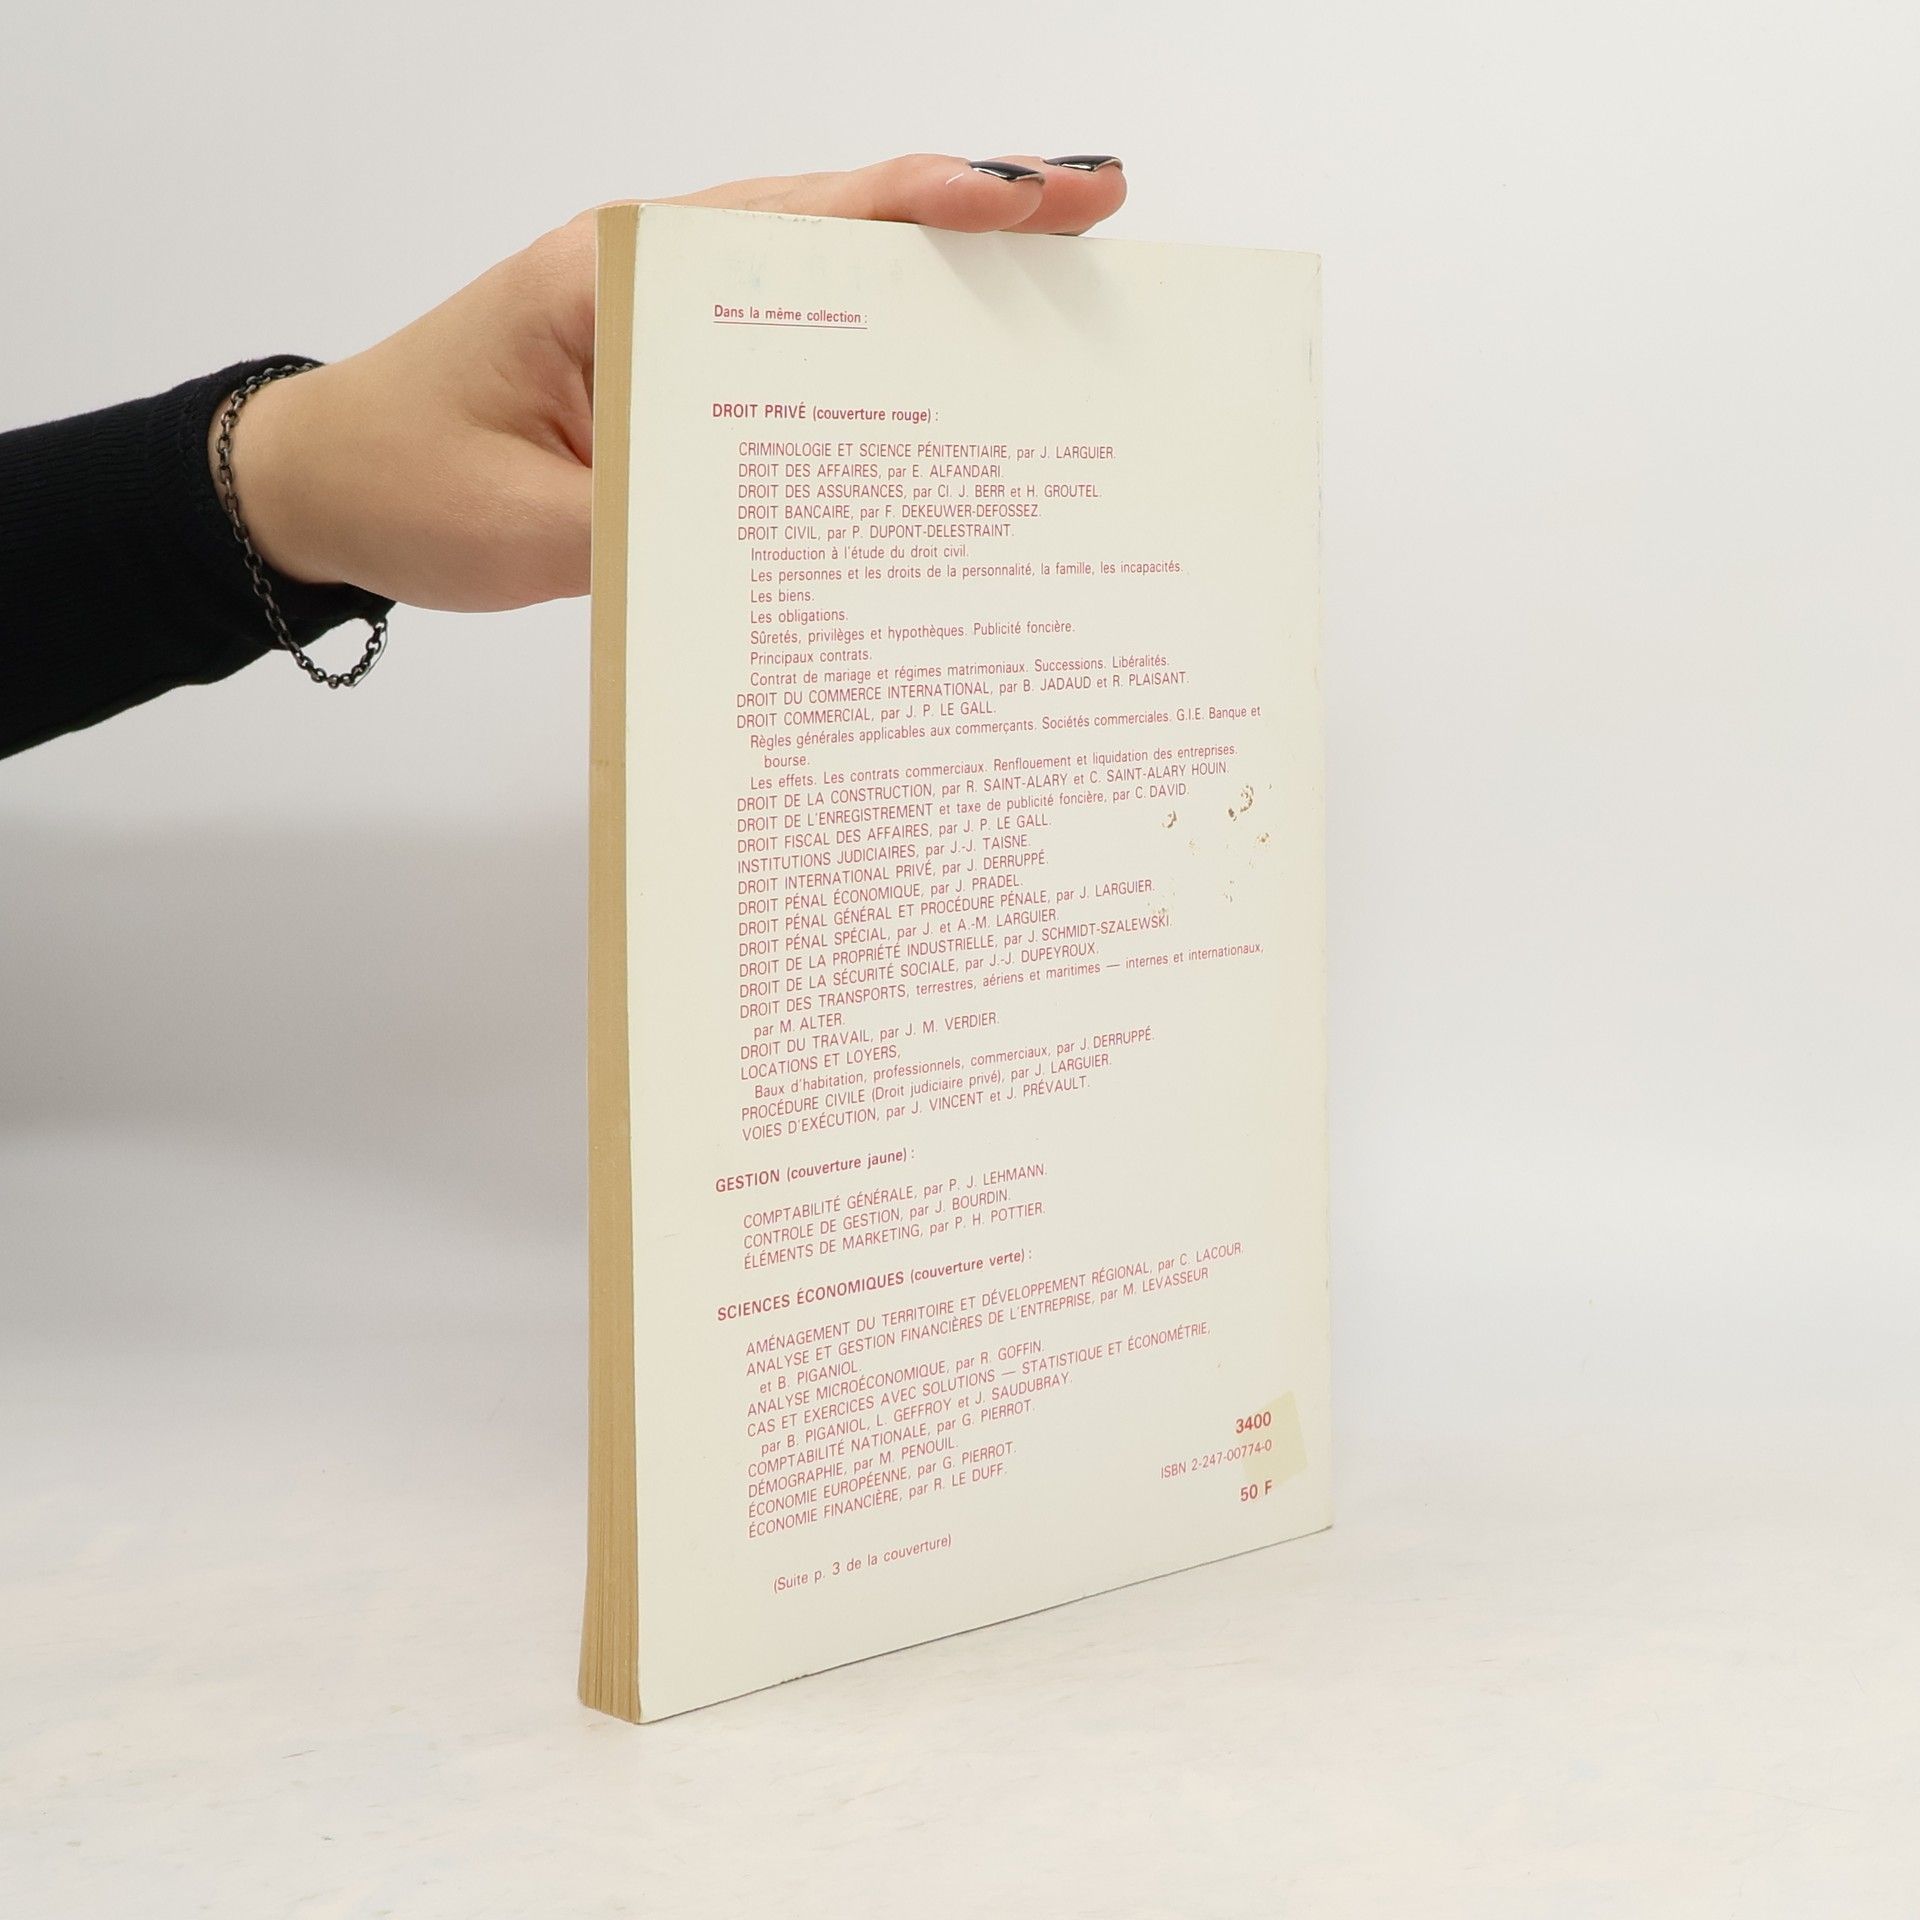 Dans la même collection :
DROIT PRIVÉ (couverture rouge) :
CRIMINOLOGIE ET SCIENCE PÉNITENTIAIRE, par J. LARGUIER.
DROIT DES AFFAIRES, par E. ALFANDARI.
DROIT DES ASSURANCES, par Cl. J. BERR et H. GROUTEL.
DROIT BANCAIRE, par F. DEKEUWER-DEFOSSEZ.
DROIT CIVIL, par P. DUPONT-DELESTRAINT.
Introduction à l'étude du droit civil.
Les personnes et les droits de la personnalité, la famille, les incapacités.
Les biens.
Les obligations.
Sûretés, privilèges et hypothèques. Publicité foncière.
Principaux contrats.
Contrat de mariage et régimes matrimoniaux. Successions. Libéralités.
DROIT DU COMMERCE INTERNATIONAL, par B. JADAUD et R. PLAISANT.
DROIT COMMERCIAL, par J. P. LE GALL.
Règles générales applicables aux commerçants. Sociétés commerciales. G.I.E. Banque et
bourse.
Les effets. Les contrats commerciaux. Renflouement et liquidation des entreprises.
DROIT DE LA CONSTRUCTION, par R. SAINT-ALARY et C. SAINT-ALARY HOUIN.
DROIT DE L'ENREGISTREMENT et taxe de publicité foncière, par C. DAVID.
DROIT FISCAL DES AFFAIRES, par J. P. LE GALL.
INSTITUTIONS JUDICIAIRES, par J.-J. TAISNE.
DROIT INTERNATIONAL PRIVÉ, par J. DERRUPPÉ.
DROIT PÉNAL ÉCONOMIQUE, par J. PRADEL.
DROIT PÉNAL GÉNÉRAL ET PROCÉDURE PÉNALE, par J. LARGUIER.
DROIT PÉNAL SPÉCIAL, par J. et A.-M. LARGUIER.
DROIT DE LA PROPRIÉTÉ INDUSTRIELLE, par J. SCHMIDT-SZALEWSKI.
DROIT DE LA SÉCURITÉ SOCIALE, par J.-J. DUPEYROUX.
DROIT DES TRANSPORTS, terrestres, aériens et maritimes — internes et internationaux,
par M. ALTER.
DROIT DU TRAVAIL, par J. M. VERDIER.
LOCATIONS ET LOYERS,
Baux d'habitation, professionnels, commerciaux, par J. DERRUPPÉ.
PROCÉDURE CIVILE (Droit judiciaire privé), par J. LARGUIER.
VOIES D'EXÉCUTION, par J. VINCENT et J. PRÉVAULT.
GESTION (couverture jaune) :
COMPTABILITÉ GÉNÉRALE, par P. J. LEHMANN.
CONTROLE DE GESTION, par J. BOURDIN.
ÉLÉMENTS DE MARKETING, par P. H. POTTIER.
SCIENCES ÉCONOMIQUES (couverture verte) :
AMÉNAGEMENT DU TERRITOIRE ET DÉVELOPPEMENT RÉGIONAL, par C. LACOUR.
ANALYSE ET GESTION FINANCIÈRES DE L'ENTREPRISE, par M. LEVASSEUR
et B. PIGANIOL.
ANALYSE MICROÉCONOMIQUE, par R. GOFFIN.
CAS ET EXERCICES AVEC SOLUTIONS — STATISTIQUE ET ÉCONOMÉTRIE,
par B. PIGANIOL, L. GEFFROY et J. SAUDUBRAY.
COMPTABILITÉ NATIONALE, par G. PIERROT.
DÉMOGRAPHIE, par M. PENOUIL.
ÉCONOMIE EUROPÉENNE, par G. PIERROT.
ÉCONOMIE FINANCIÈRE, par R. LE DUFF.
3400
ISBN 2-247-00774-0
50 F
(Suite p. 3 de la couverture)